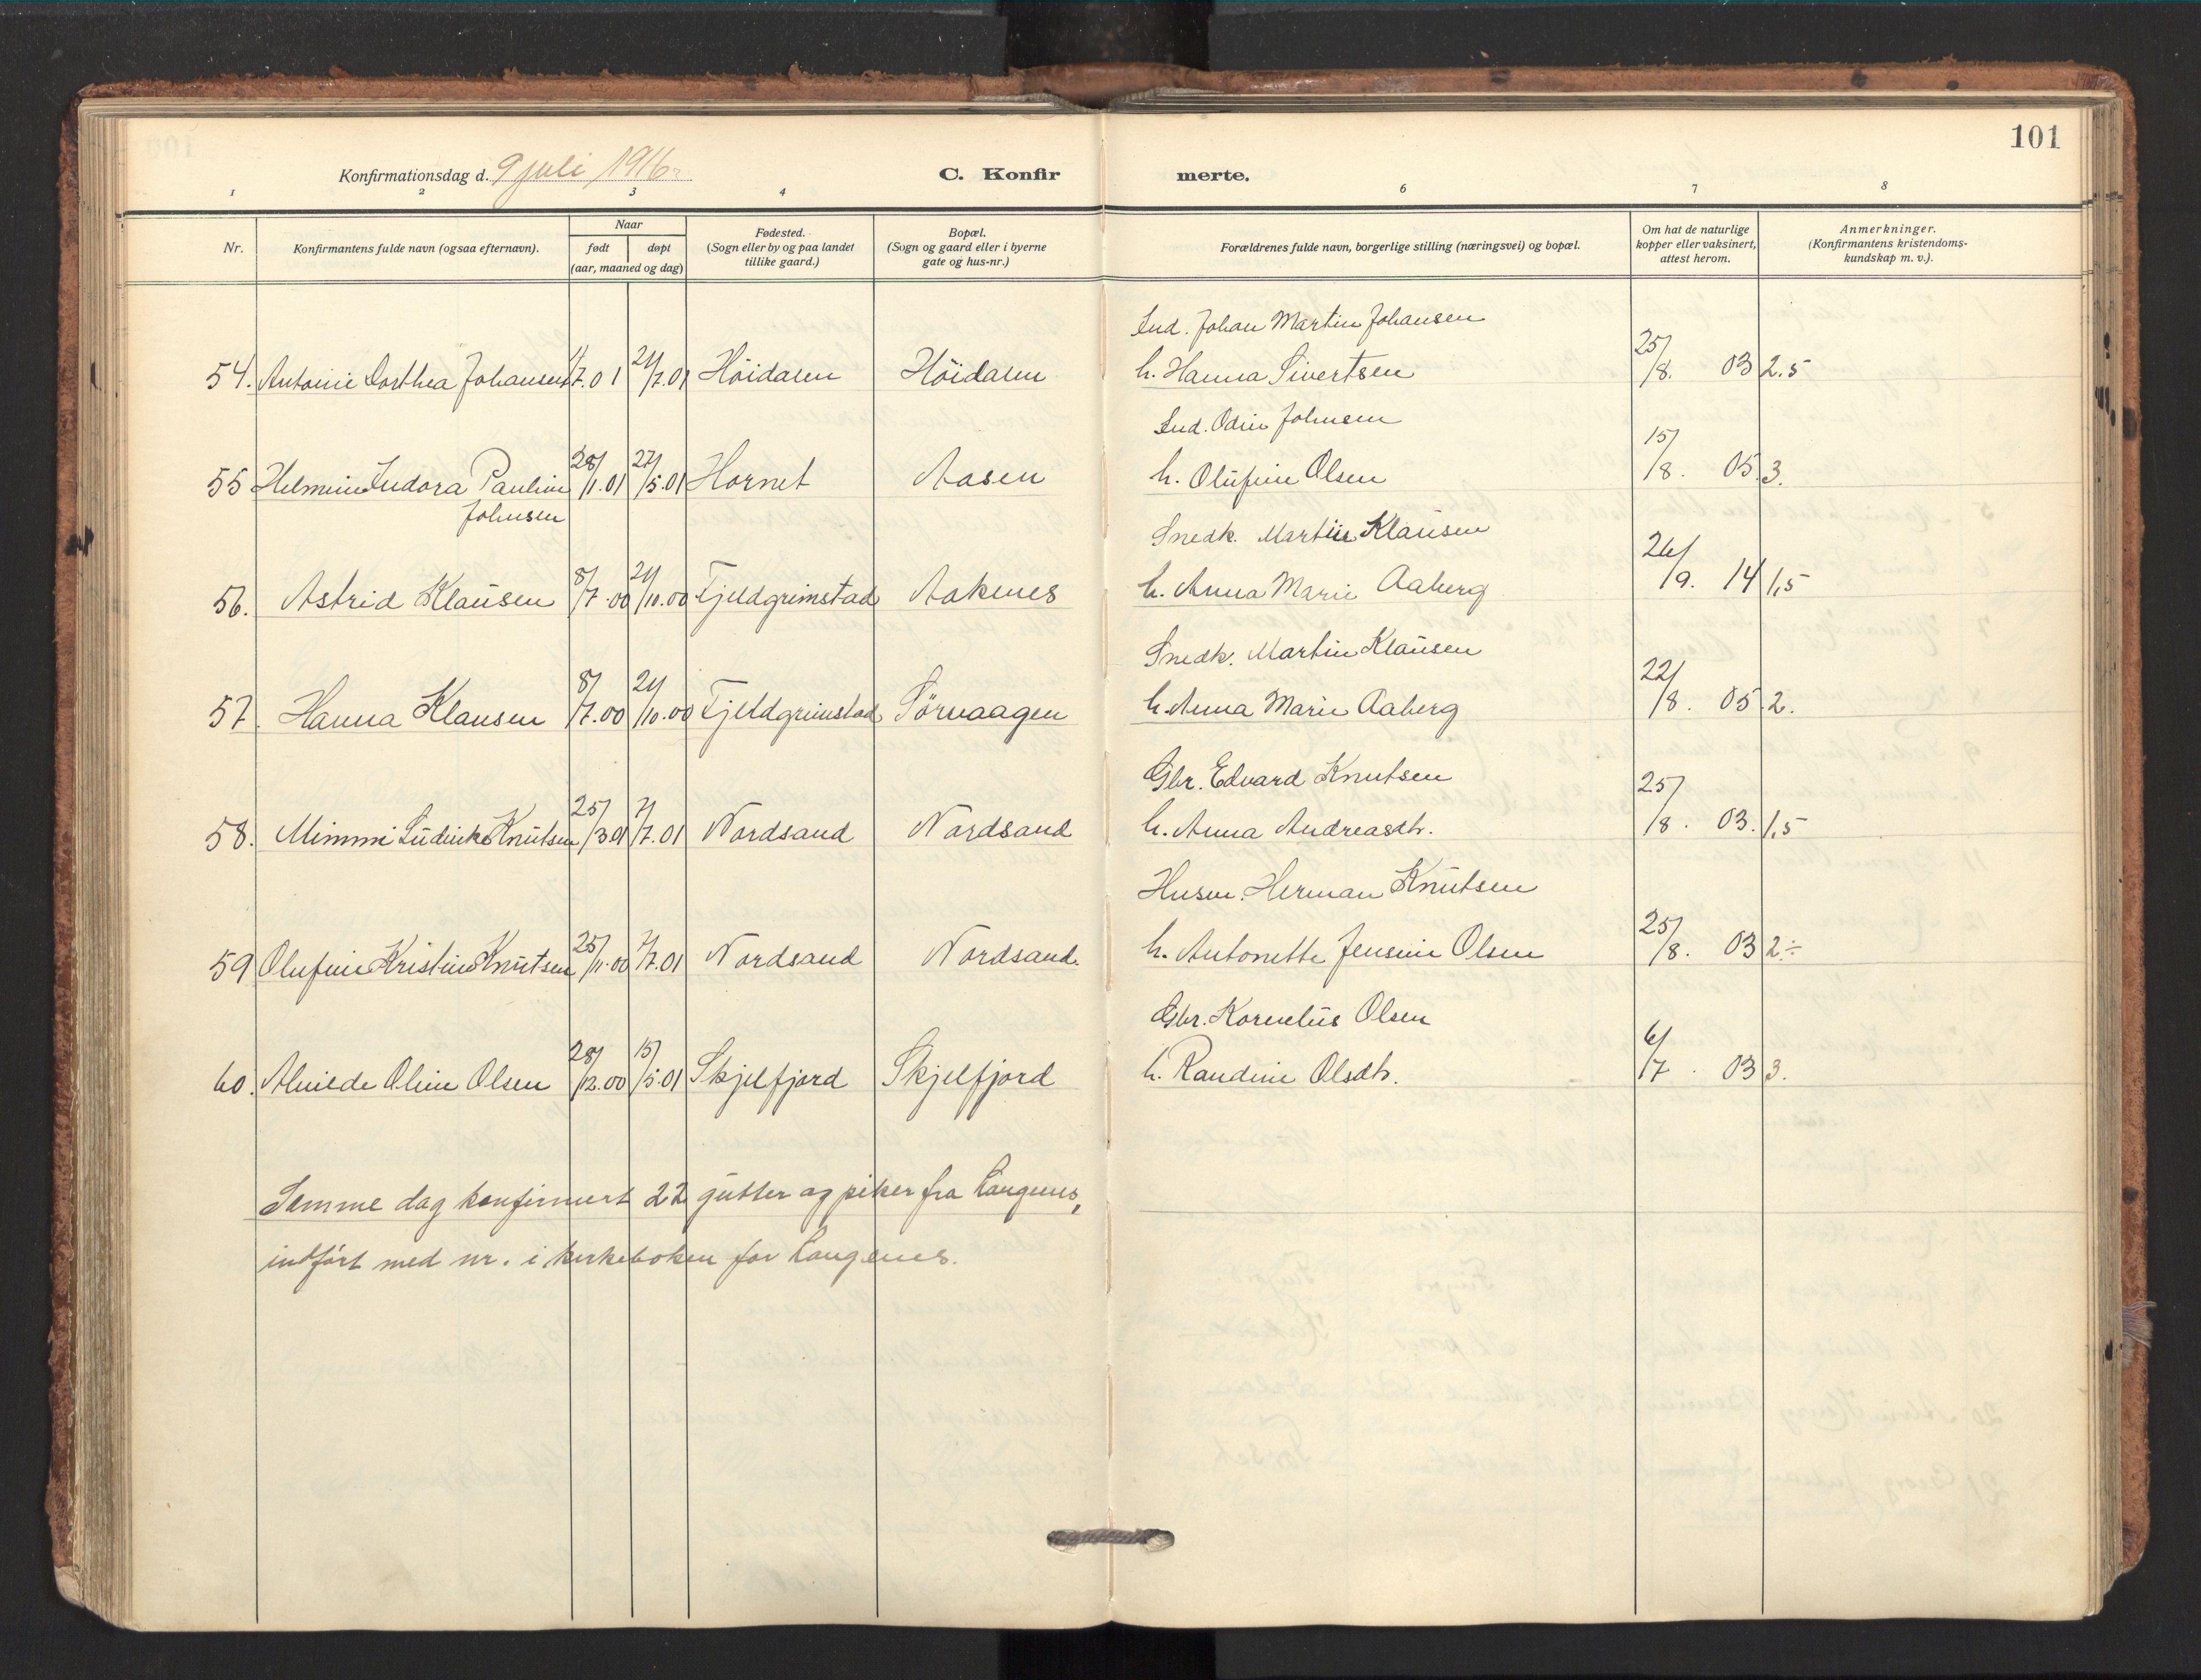 101
Konfirmationsdag d. 9 juli 1916.
C. Konfir merte.
1 2 3 4 6 7 8
Nr.
Konfirmantens fulde navn (ogsaa efternavn).
Naar
født
døpt
(aar, maaned og dag)
Fødested.
(Sogn eller by og paa landet
tillike gaard.)
Bopæl.
(Sogn og gaard eller i byerne
gate og hus-nr.)
Forældrenes fulde navn, borgerlige stilling (næringsvei) og bopæl.
Om hat de naturlige
kopper eller vaksinert,
attest herom.
Anmerkninger.
(Konfirmantens kristendoms-
kundskap m. v.).
Ind. Johan Martin Johansen
54. Antonie Dorthea Johansen 1/7.01 21/7.01 Höidalen Höidalen h. Hanna Sivertsen 25/8. 03 2.5
Ind. Odin Johnsen
55 Helmine Indora Pauline 28/1.01 27/5.01 Hornet Aasen h. Olufine Olsen 15/8. 05 3.
Johnsen
Snedk. Martin Klausen
56. Astrid Klausen 8/7.00 21/10.00 Fjeldgrimstad Aakenes h. Anna Marie Aaberg 26/9. 14 1,5
Snedk. Martin Klausen
57. Hanna Klausen 8/7.00 21/10.00 Fjeldgrimstad Sörvaagen h. Anna Marie Aaberg 22/8. 05 2.
Gbr. Edvard Knutsen
58. Mimmi Ludvikke Knutsen 25/3.01 7/7.01 Nordsand Nordsand h. Anna Andreasdtr. 25/8. 03. 1,5
Husm. Herman Knutsen
59 Olufine Kristine Knutsen 25/11.00 7/7.01 Nordsand Nordsand. h. Antonette Jensine Olsen 25/8. 03 2÷
Gbr. Kornelius Olsen
60. Alvilde Oline Olsen 28/12.00 15/5.01 Skjelfjord Skjelfjord h. Randine Olsdtr. 6/7. 03 3.
Samme dag konfirmert 22 gutter og piker fra Langenes,
indført med nr. i kirkeboken for Langenes.